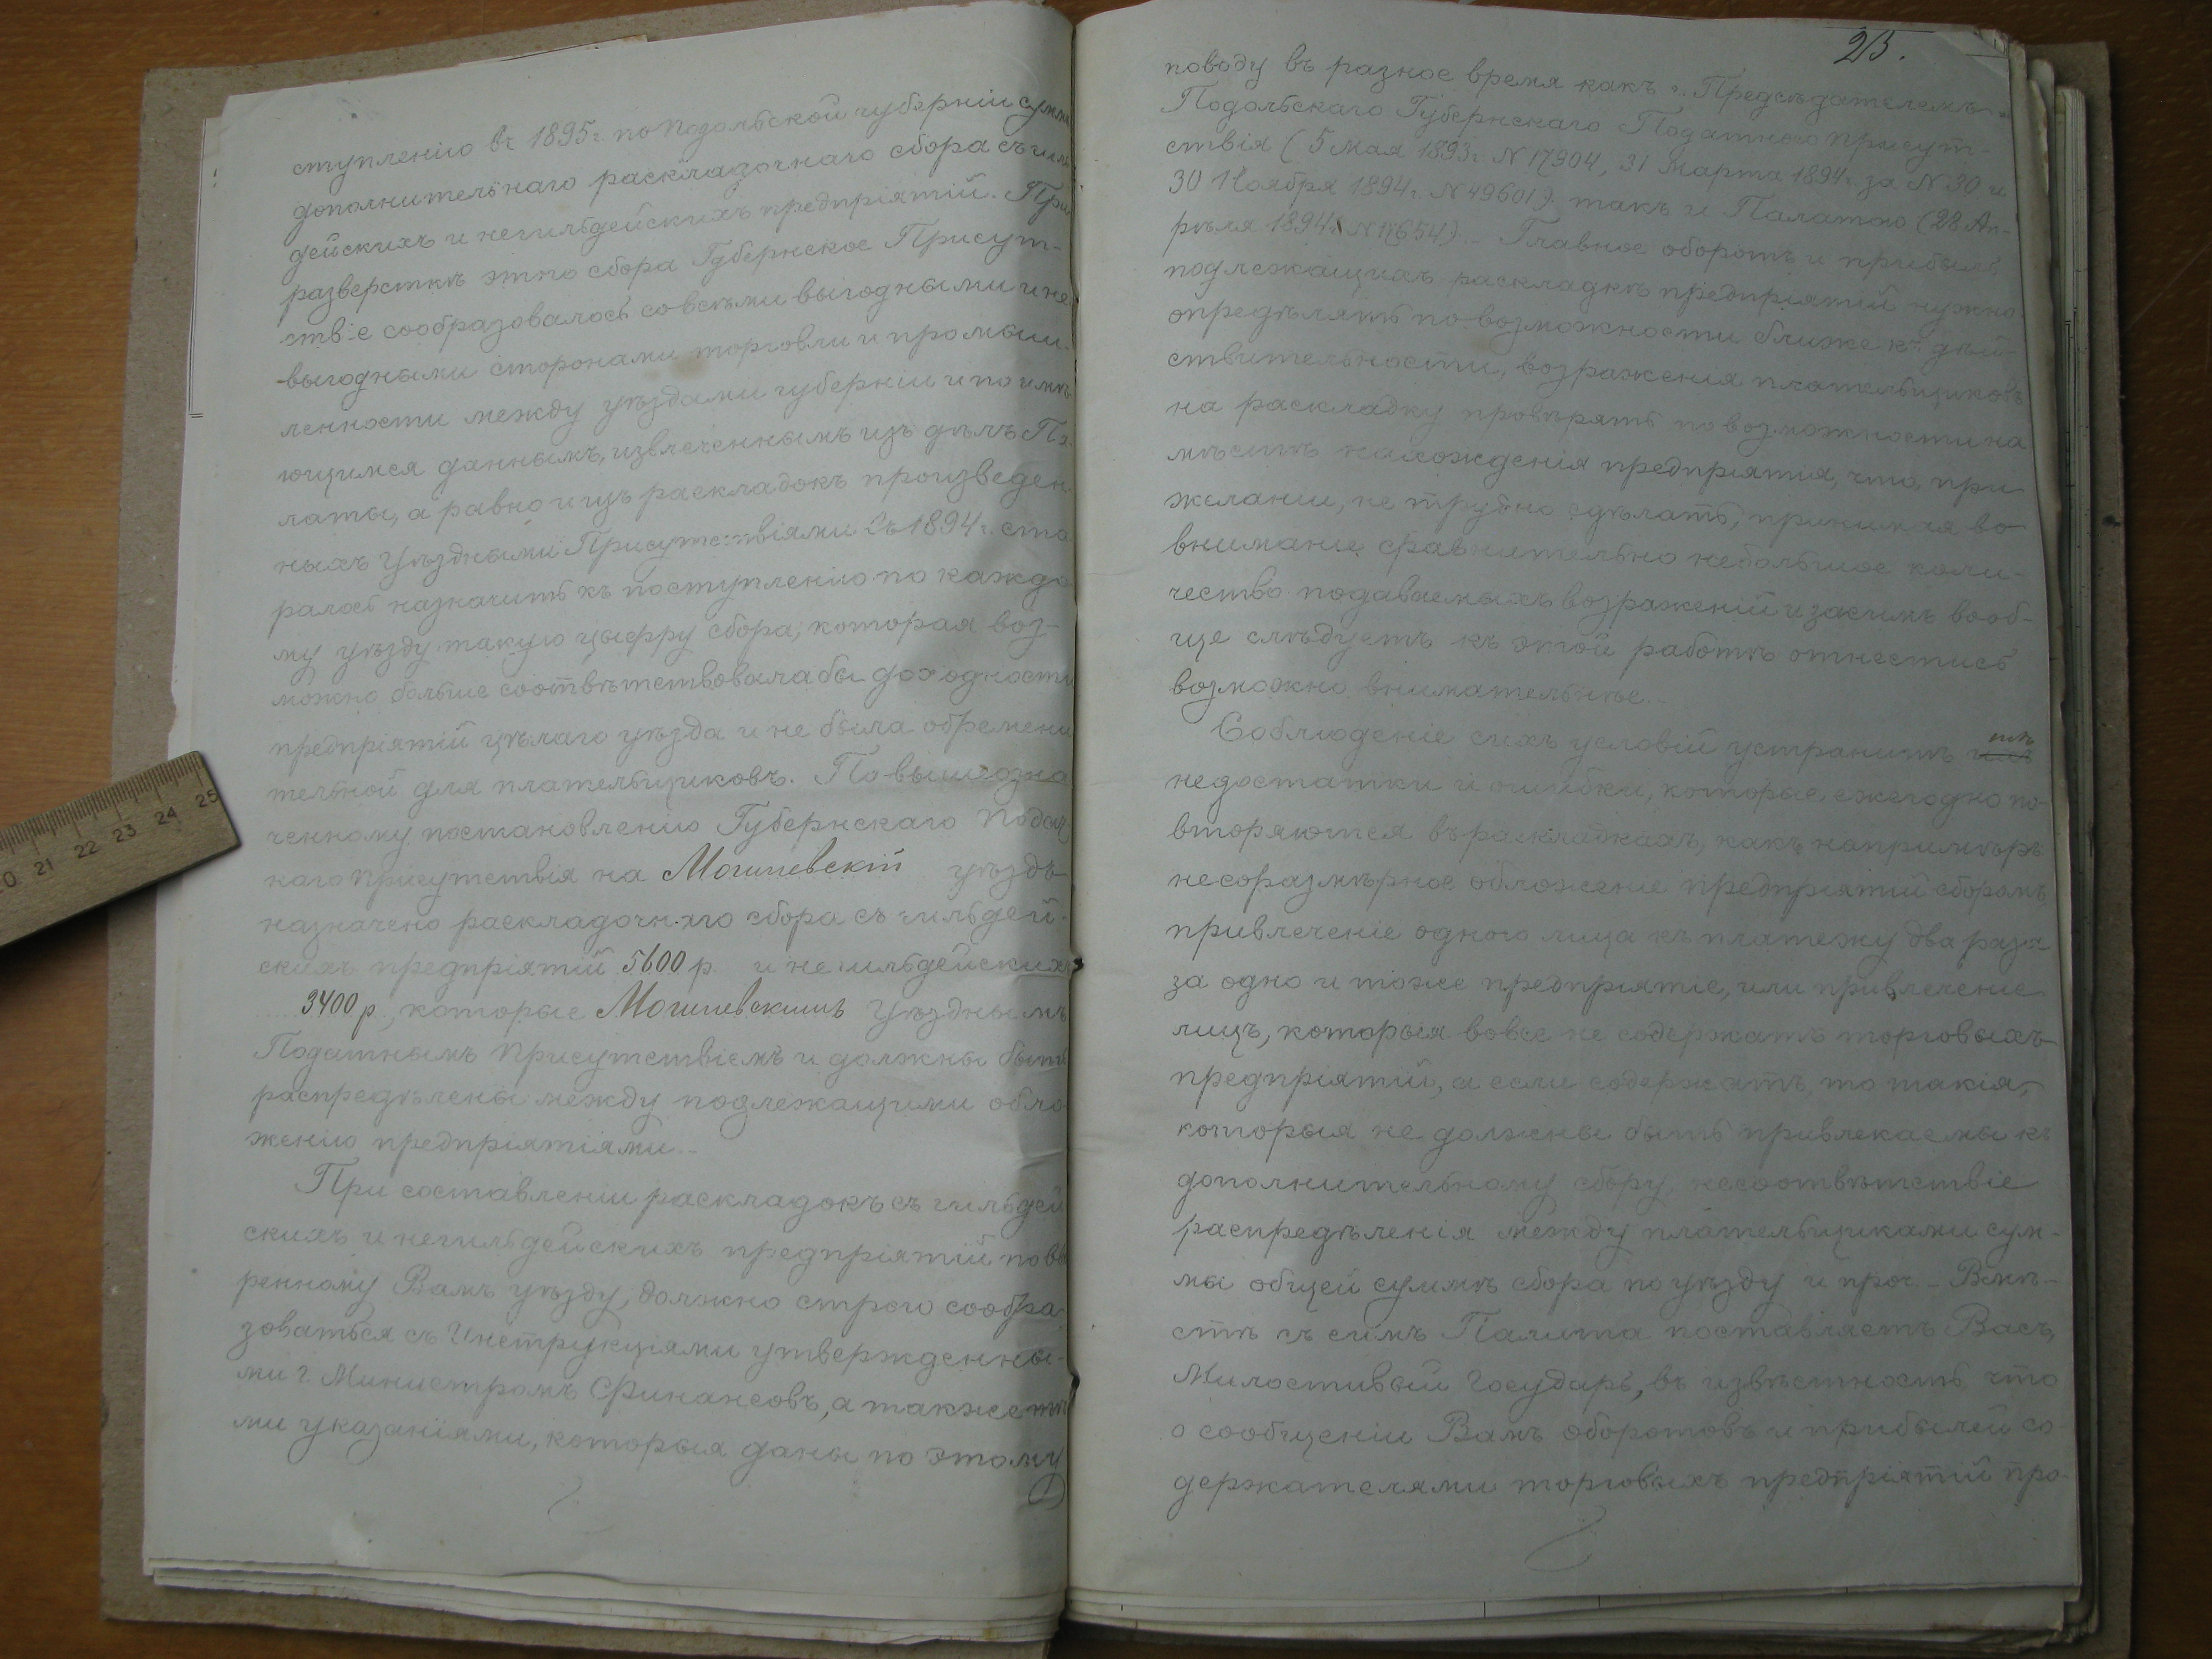 ступленію въ 1895 г. по Подольской губерніи суммы
дополнительнаго раскладочнаго сбора съ гиль
дейскихъ и негильдейскихъ предпріятій. При
разверсткѣ этаго сбора Губернское Присут-
ствіе сообразовалось со всѣми выгодными и не
выгодными сторонами торговли и промыш-
ленности между уѣздами губерніи и по имѣ
ющимся даннымъ, извлеченнымъ изъ дѣлъ Па
латы, а равно и изъ раскладокъ произведен
ныхъ Уѣздными Присутствіями въ 1894 г. ста
ралось назначить къ поступленію по каждо
му уѣзду такую цыфру сбора, которая воз-
можно больше соотвѣтствовала бы доходности
предпріятій цѣлаго уѣзда и не была обремени
тельной для плательщиковъ. По вышеозна
ченному постановленію Губернскаго Подат
наго Присутствія на Могилевскій уѣздъ
назначено раскладочнаго сбора съ гильдей-
скихъ предпріятій 5600 р. и негильдейскихъ
3400 р., которые Могилевскимъ Уѣзднымъ
Податнымъ Присутствіемъ и должны быть
распредѣлены между подлежащими обло
женію предпріятіями..
При составленіи раскладокъ съ гильдей
скихъ и негильдейскихъ предпріятій по ввѣ
ренному Вамъ уѣзду, должно строго сообра-
зоваться съ Инструкціями утвержденны-
ми г. Министромъ Финансовъ, а также тѣ
ми указаніями, которыя даны по этому
23.
поводу въ разное время какъ г. Предсѣдателемъ
Подольскаго Губернскаго Податнаго Присут-
ствія (5 Мая 1893 г. N 17904, 31 Марта 1894 г. за N 30 и
30 Ноября 1894 г. N 49601), такъ и Палатою (28 Ап-
рѣля 1894 г. N 17654). - Главное оборотъ и прибыль
подлежащихъ раскладкѣ предпріятій нужно
опредѣлять по возможности ближе къ дѣй-
ствительности, возраженія плательщиковъ
на раскладку провѣрять по возможности на
мѣстѣ нахожденія предпріятія, что, при
желаніи, не трудно сдѣлать, принимая во
вниманіе сравнительно небольшое коли-
чество подаваемыхъ возраженій и засимъ вооб-
ще слѣдуетъ къ этой работѣ отнестись
возможно внимательнѣе..
Соблюденіе сихъ условій устранитъ тѣ
недостатки и ошибки, которые ежегодно по-
вторяются въ раскладкахъ, какъ напримѣръ
несоразмѣрное обложеніе предпріятій сборомъ
привлеченіе одного лица къ платежу два раза
за одно и тоже предпріятіе, или привлеченіе
лицъ, которыя вовсе не содержатъ торговыхъ
предпріятій, а если содержатъ, то такія,
которыя не должны быть привлекаемы къ
дополнительному сбору, несоотвѣтствіе
распредѣленія между плательщиками сум-
мы общей суммѣ сбора по уѣзду и проч. - Вмѣ-
стѣ съ симъ Палата поставляетъ Васъ,
Милостивый Государь, въ извѣстность, что
о сообщеніи Вамъ оборотовъ и прибылей со
держателями торговыхъ предпріятій про-